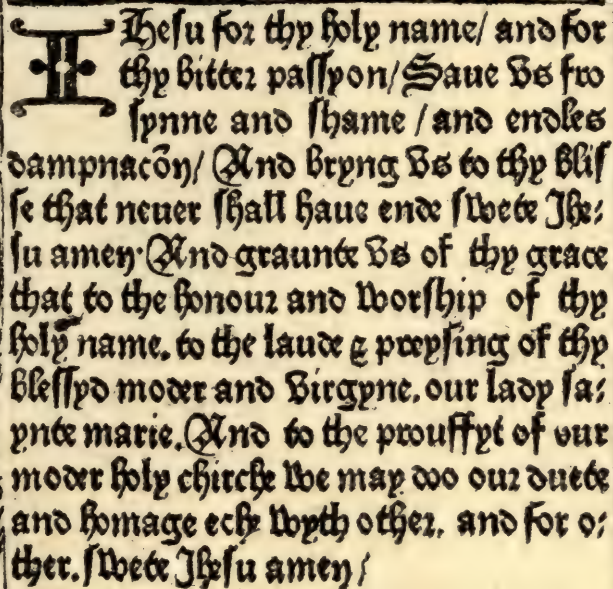 IHesu for thy holy name/ and for
thy bitter passyon/ Saue vs fro
synne and shame / and endles
dampnacōn/ And bryng vs to thy blis
se that neuer shall haue ende swete Jhe:
su amen· And graunte vs of thy grace
that to the honour and worship of thy
holy name. to the laude & preysing of thy
blessyd moder and virgyne. our lady sa:
ynte marie. And to the prouffyt of our
moder holy chirche we may doo our duete
and homage eche wyth other. and for o:
ther. swete Jhesu amen/